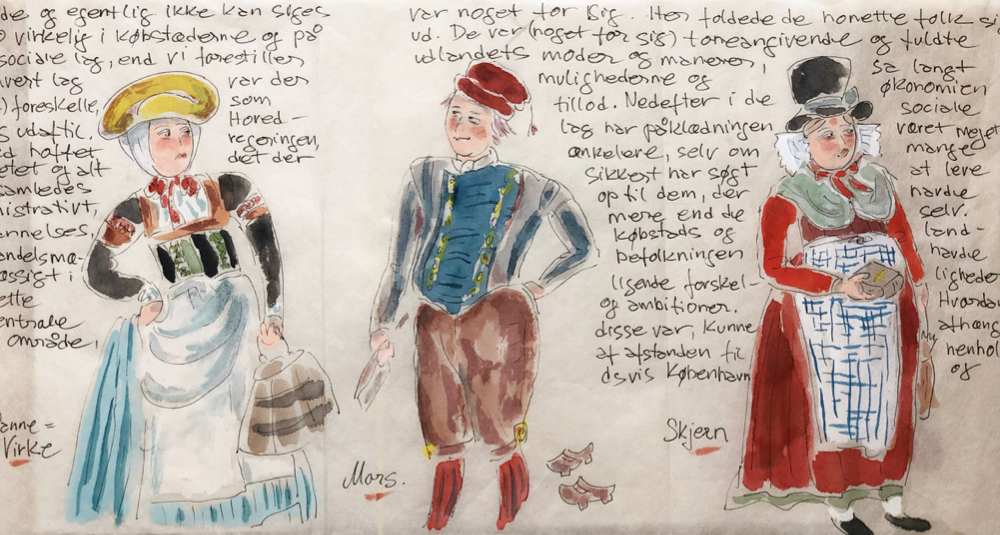 de og egentlig ikke kan siges
virkelig i købstæderne og på
sociale lag, end vi forestiller
hvert lag
foreskelle,
udaftil.
haftet
etet og alt
samledes
nistrativt,
ennelses,
andelsmæ-
assigt i
ette
entrale
område,
var der
som
Hoved-
regeringen,
det der
var noget for sig. Her foldede de honette folk si
ud. De var (noget for sig) toneangivende og fuldte
udlandets moder og manerer,
mulighederne og
tillod. Nedefter i de
lag har påklædningen
enkelere, selv om
sikkert har søgt
op til dem, der
mere end de
købstads og
befolkningen
ligende forskel-
og ambitioner.
disse var, kunne
af afstanden til
dsvis København
så langt
økonomien
sociale
været meget
mange
at leve
havde
selv.
land-
havde
ligheder
Hvordan
afhæng
nenhol
og
anne =
Virke
Mors.
Skjern